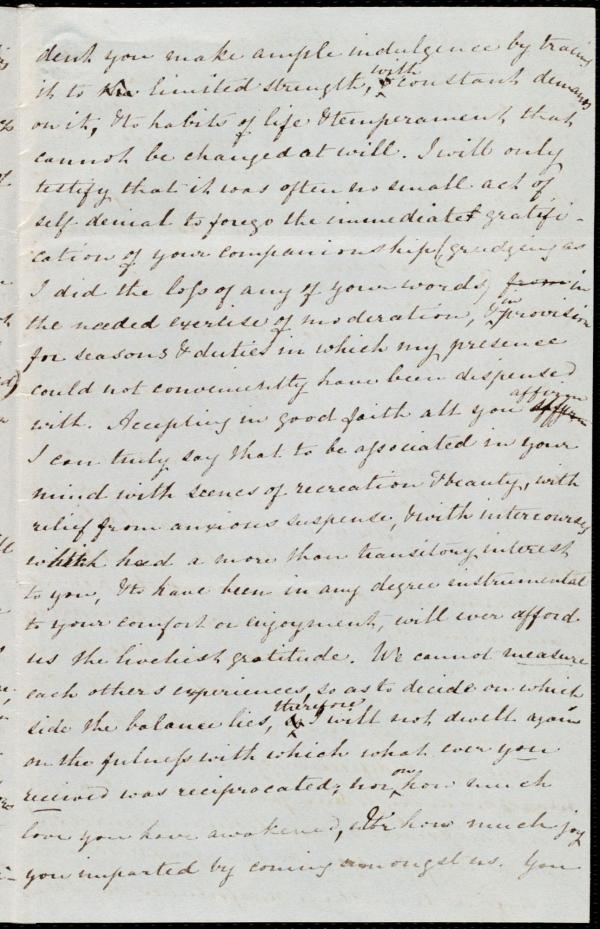 dent you make ample indulgence by tracing
it to the limited strength, with constant demands
on it, & to habits of life & temperament that
cannot be changed at will. I will only
testify that it was often no small act of
self denial to forego the immediate gratifi-
cation of your companionship (grudging as
I did the loss of any of your words) from in
the needed exercise of moderation, & in provision
for seasons & duties in which my presence
could not conveniently have been dispensed
with. Accepting in good faith all you affirm
I can truly say that to be associated in your
mind with scenes of recreation & beauty, with
relief from anxious suspense, & with intercourse
which had a more than transitory interest
to you, & to have been in any degree instrumental
to your comfort or enjoyment, will ever afford
us the liveliest gratitude. We cannot measure
each others experiences, so as to decide on which
side the balance lies, therefore I will not dwell again
on the fulness with which what ever you
received was reciprocated; nor on how much
love you have awakened, & how much joy
you imparted by coming amongst us. You